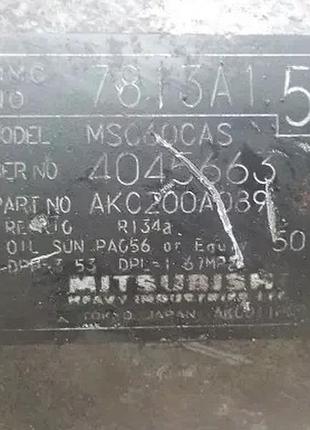 MMC
NO 7813A1 5
MODEL MSC60CAS
SER NO 4045663
PART NO AKC200A089
REFRIG R134a
OIL SUN PAG56 or Equiv 50
MITSUBISHI
HEAVY INDUSTRIES LTD
TOKYO JAPAN